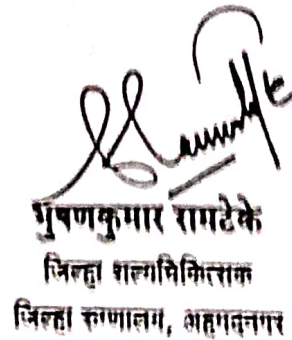 भुषणकुमार रामटेके
जिल्हा शल्यचिकित्सक
जिल्हा रुग्णालय, अहमदनगर